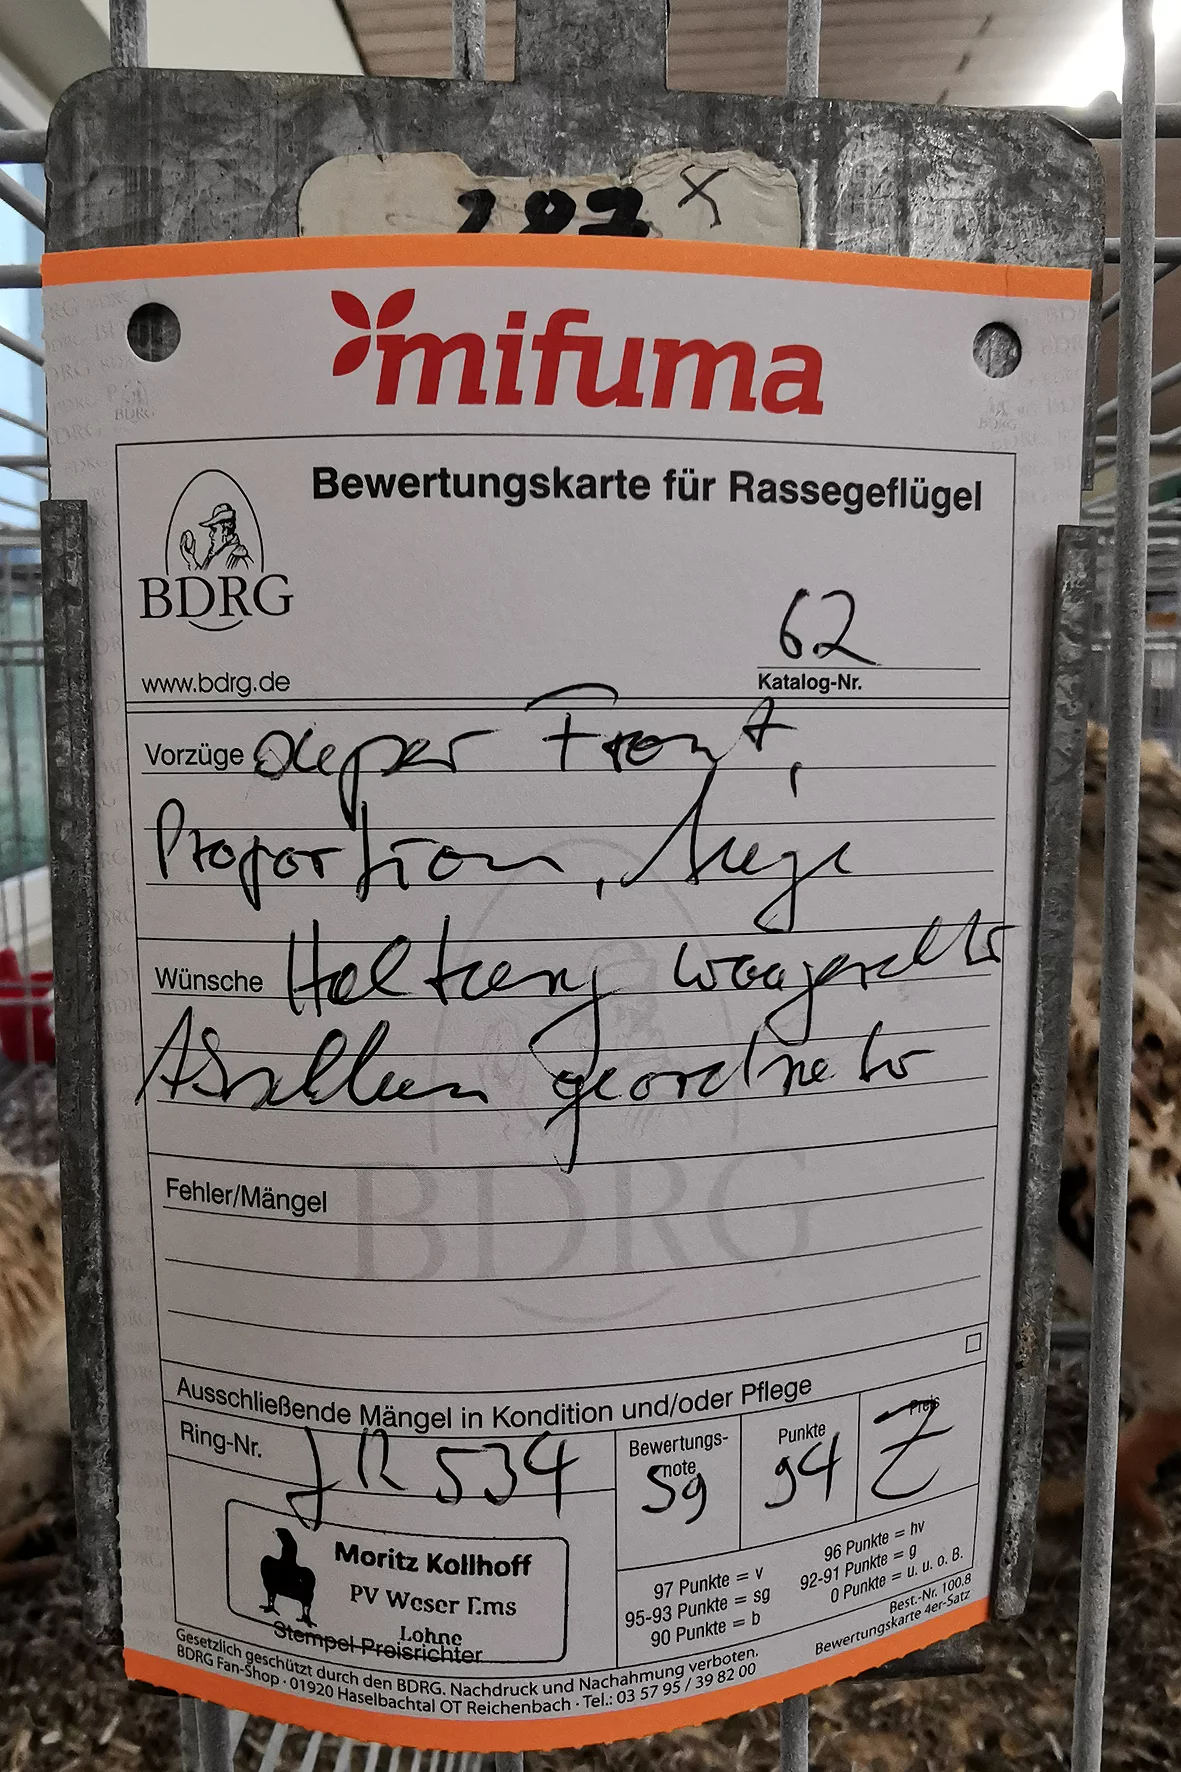 mifuma
Bewertungskarte für Rassegeflügel
BDRG
www.bdrg.de
62
Katalog-Nr.
Vorzüge Front,
Proportion, Auge
Wünsche Haltung waagerechter
geordneter
BDRG
Fehler/Mängel
Ausschließende Mängel in Kondition und/oder Pflege
Ring-Nr. JR 534
Bewertungs-
note
Sg
Punkte
94
Preis
Z
Moritz Kollhoff
PV Weser Ems
Lohne
Stempel Preisrichter
97 Punkte = v
95-93 Punkte = sg
90 Punkte = b
96 Punkte = hv
92-91 Punkte = g
0 Punkte = u. u. o. B.
Best.-Nr. 100.8
Bewertungskarte 4er-Satz
Gesetzlich geschützt durch den BDRG. Nachdruck und Nachahmung verboten.
BDRG Fan-Shop · 01920 Haselbachtal OT Reichenbach · Tel.: 03 57 95 / 39 82 00